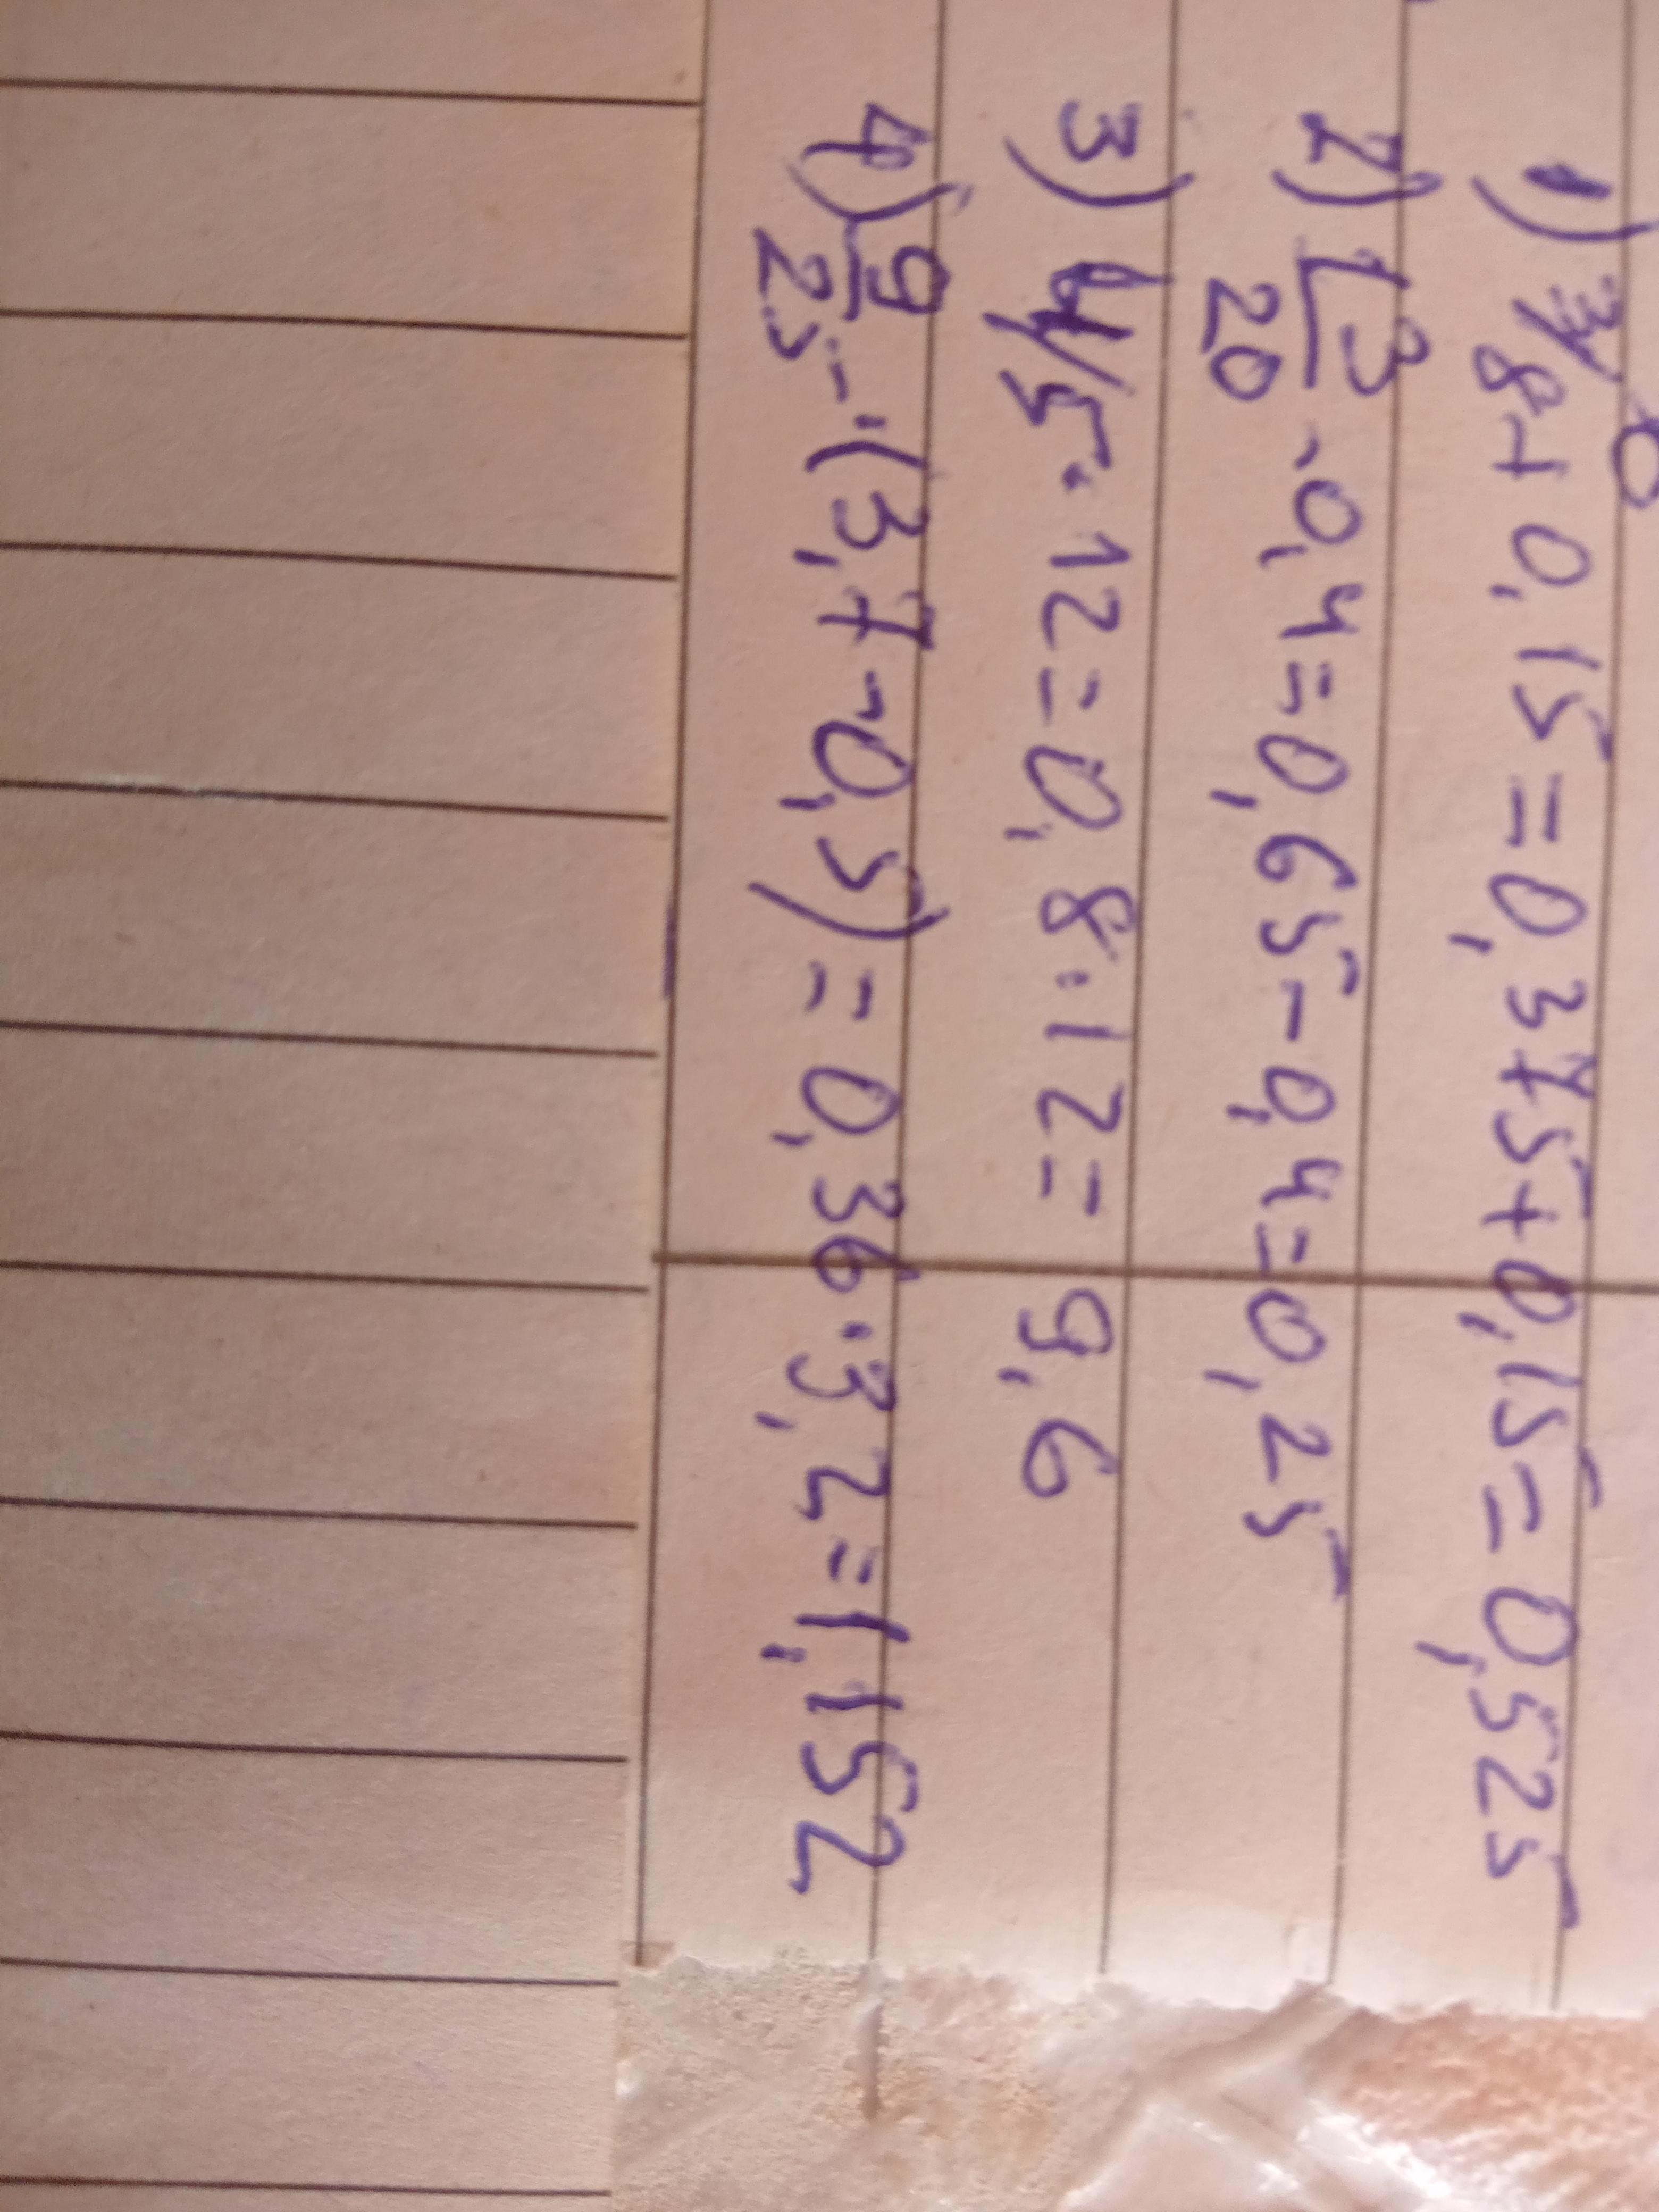 1) 3/8 + 0,15 = 0,375 + 0,15 = 0,525
2) 13/20 - 0,4 = 0,65 - 0,4 = 0,25
3) 4/5 · 12 = 0,8 · 12 = 9,6
4) 9/25 · (3,7 - 0,5) = 0,36 · 3,2 = 1,152